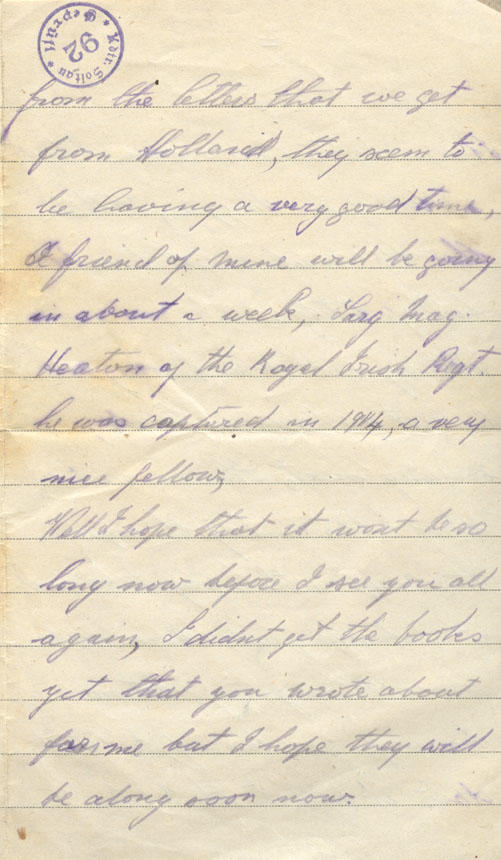 Kdtr. Soltau * Geprüft *
92
from the letters that we get
from Holland, they seem to
be having a very good time,
A friend of mine will be going
in about a week, Sarg Maj.
Heaton of the Royal Irish Regt.
he was captured in 1914, a very
nice fellow,
Well I hope that it wont be so
long now before I see you all
again, I didnt get the books
yet that you wrote about
for me but I hope they will
be along soon now.